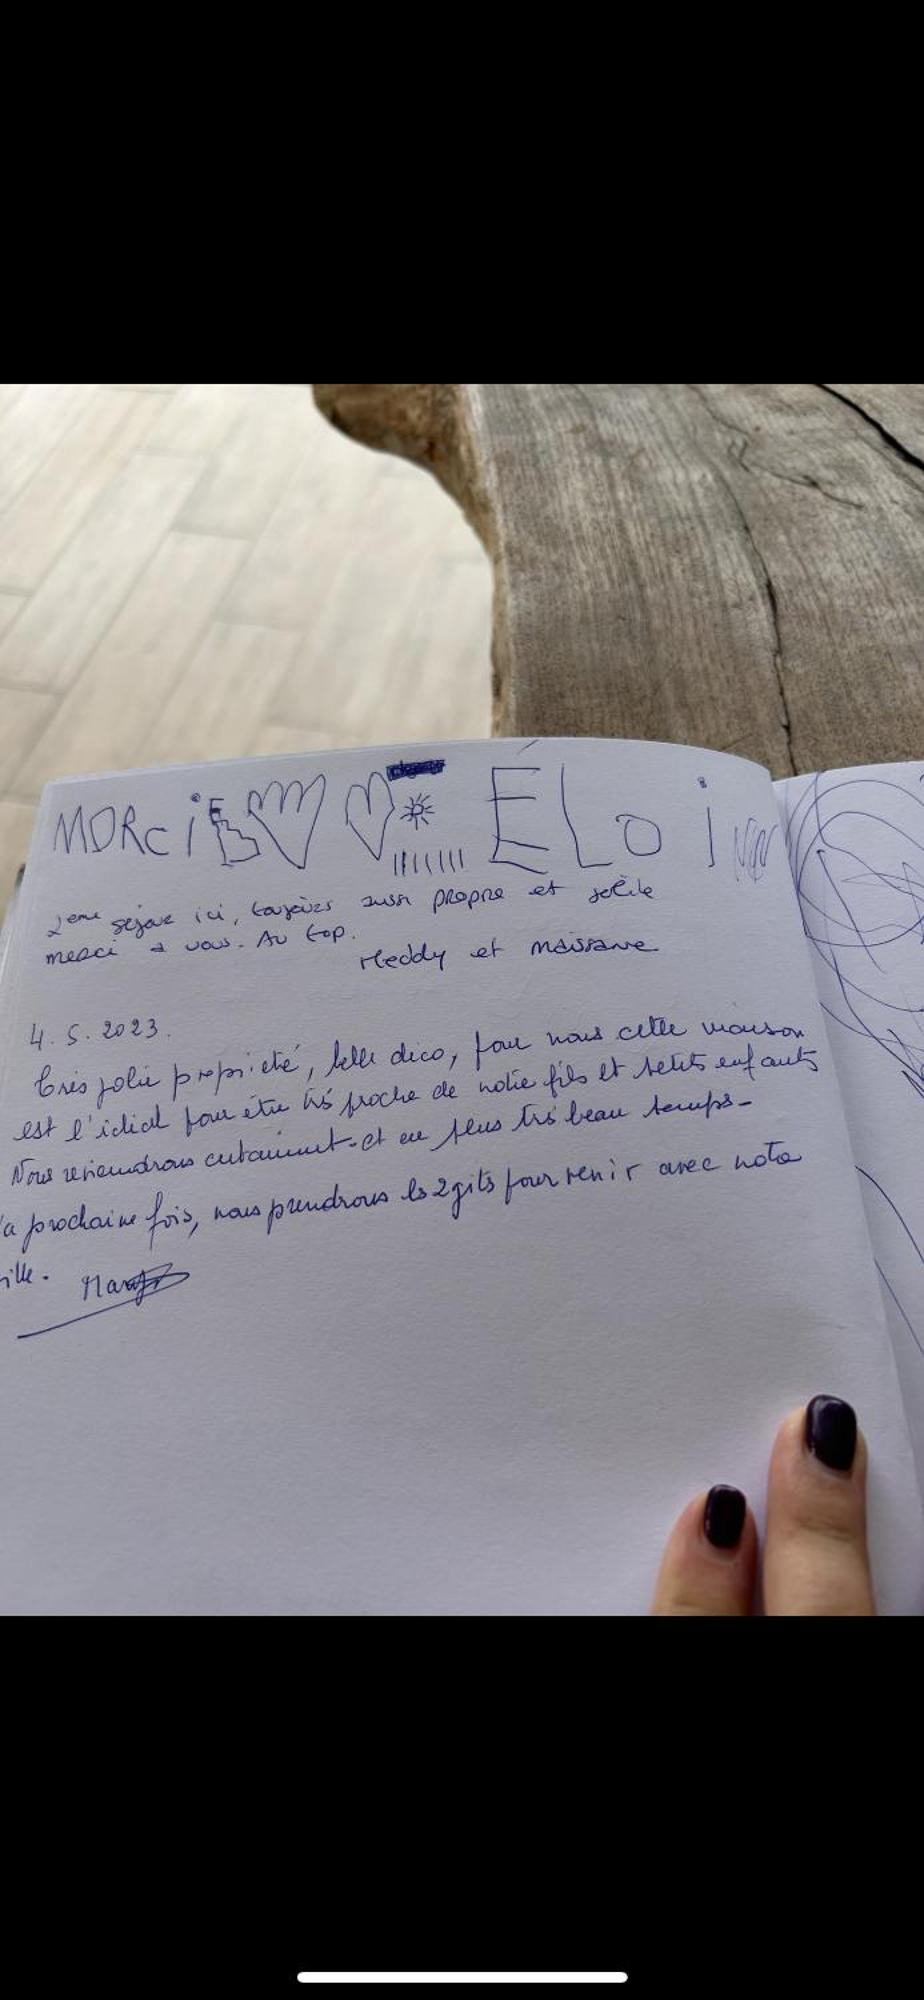 MORCi ÉLOi
2eme séjour ici, toujours aussi propre et jolie
merci à vous. Au top.
Meddy et Maissane
4.5.2023.
Très jolie propriété, belle déco, pour nous cette maison
est l'idéal pour être très proche de notre fils et petits enfants
Nous reviendrons certainement. et en plus très beau temps -
la prochaine fois, nous prendrons les 2 gits pour venir avec notre
ille.